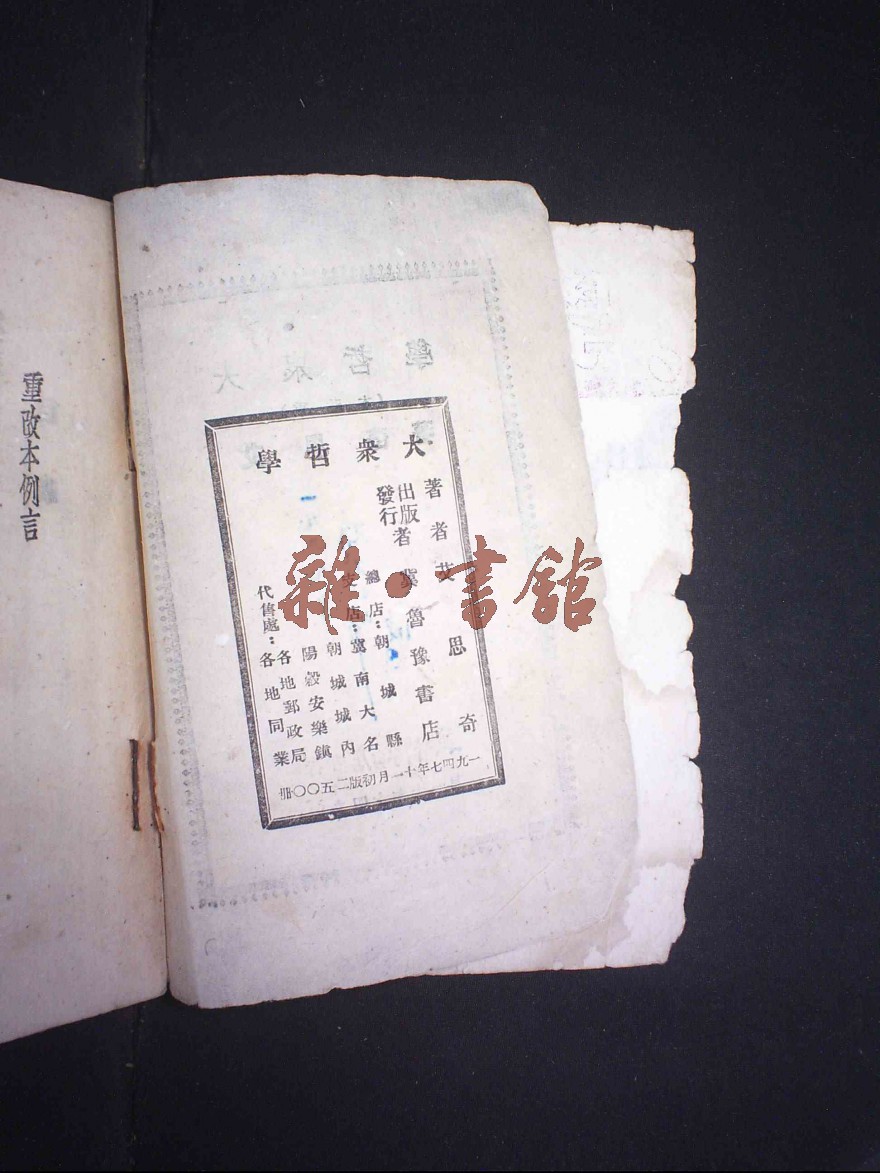 大衆哲學
著者 艾思奇
出版者
發行
冀魯豫書店
總店：朝城縣
支店：冀南大名
朝城城內
陽穀安樂鎮
各地郵政局
代售處：各地同業
一九四七年十一月初版二五〇〇冊
重改本例言
雜·書館